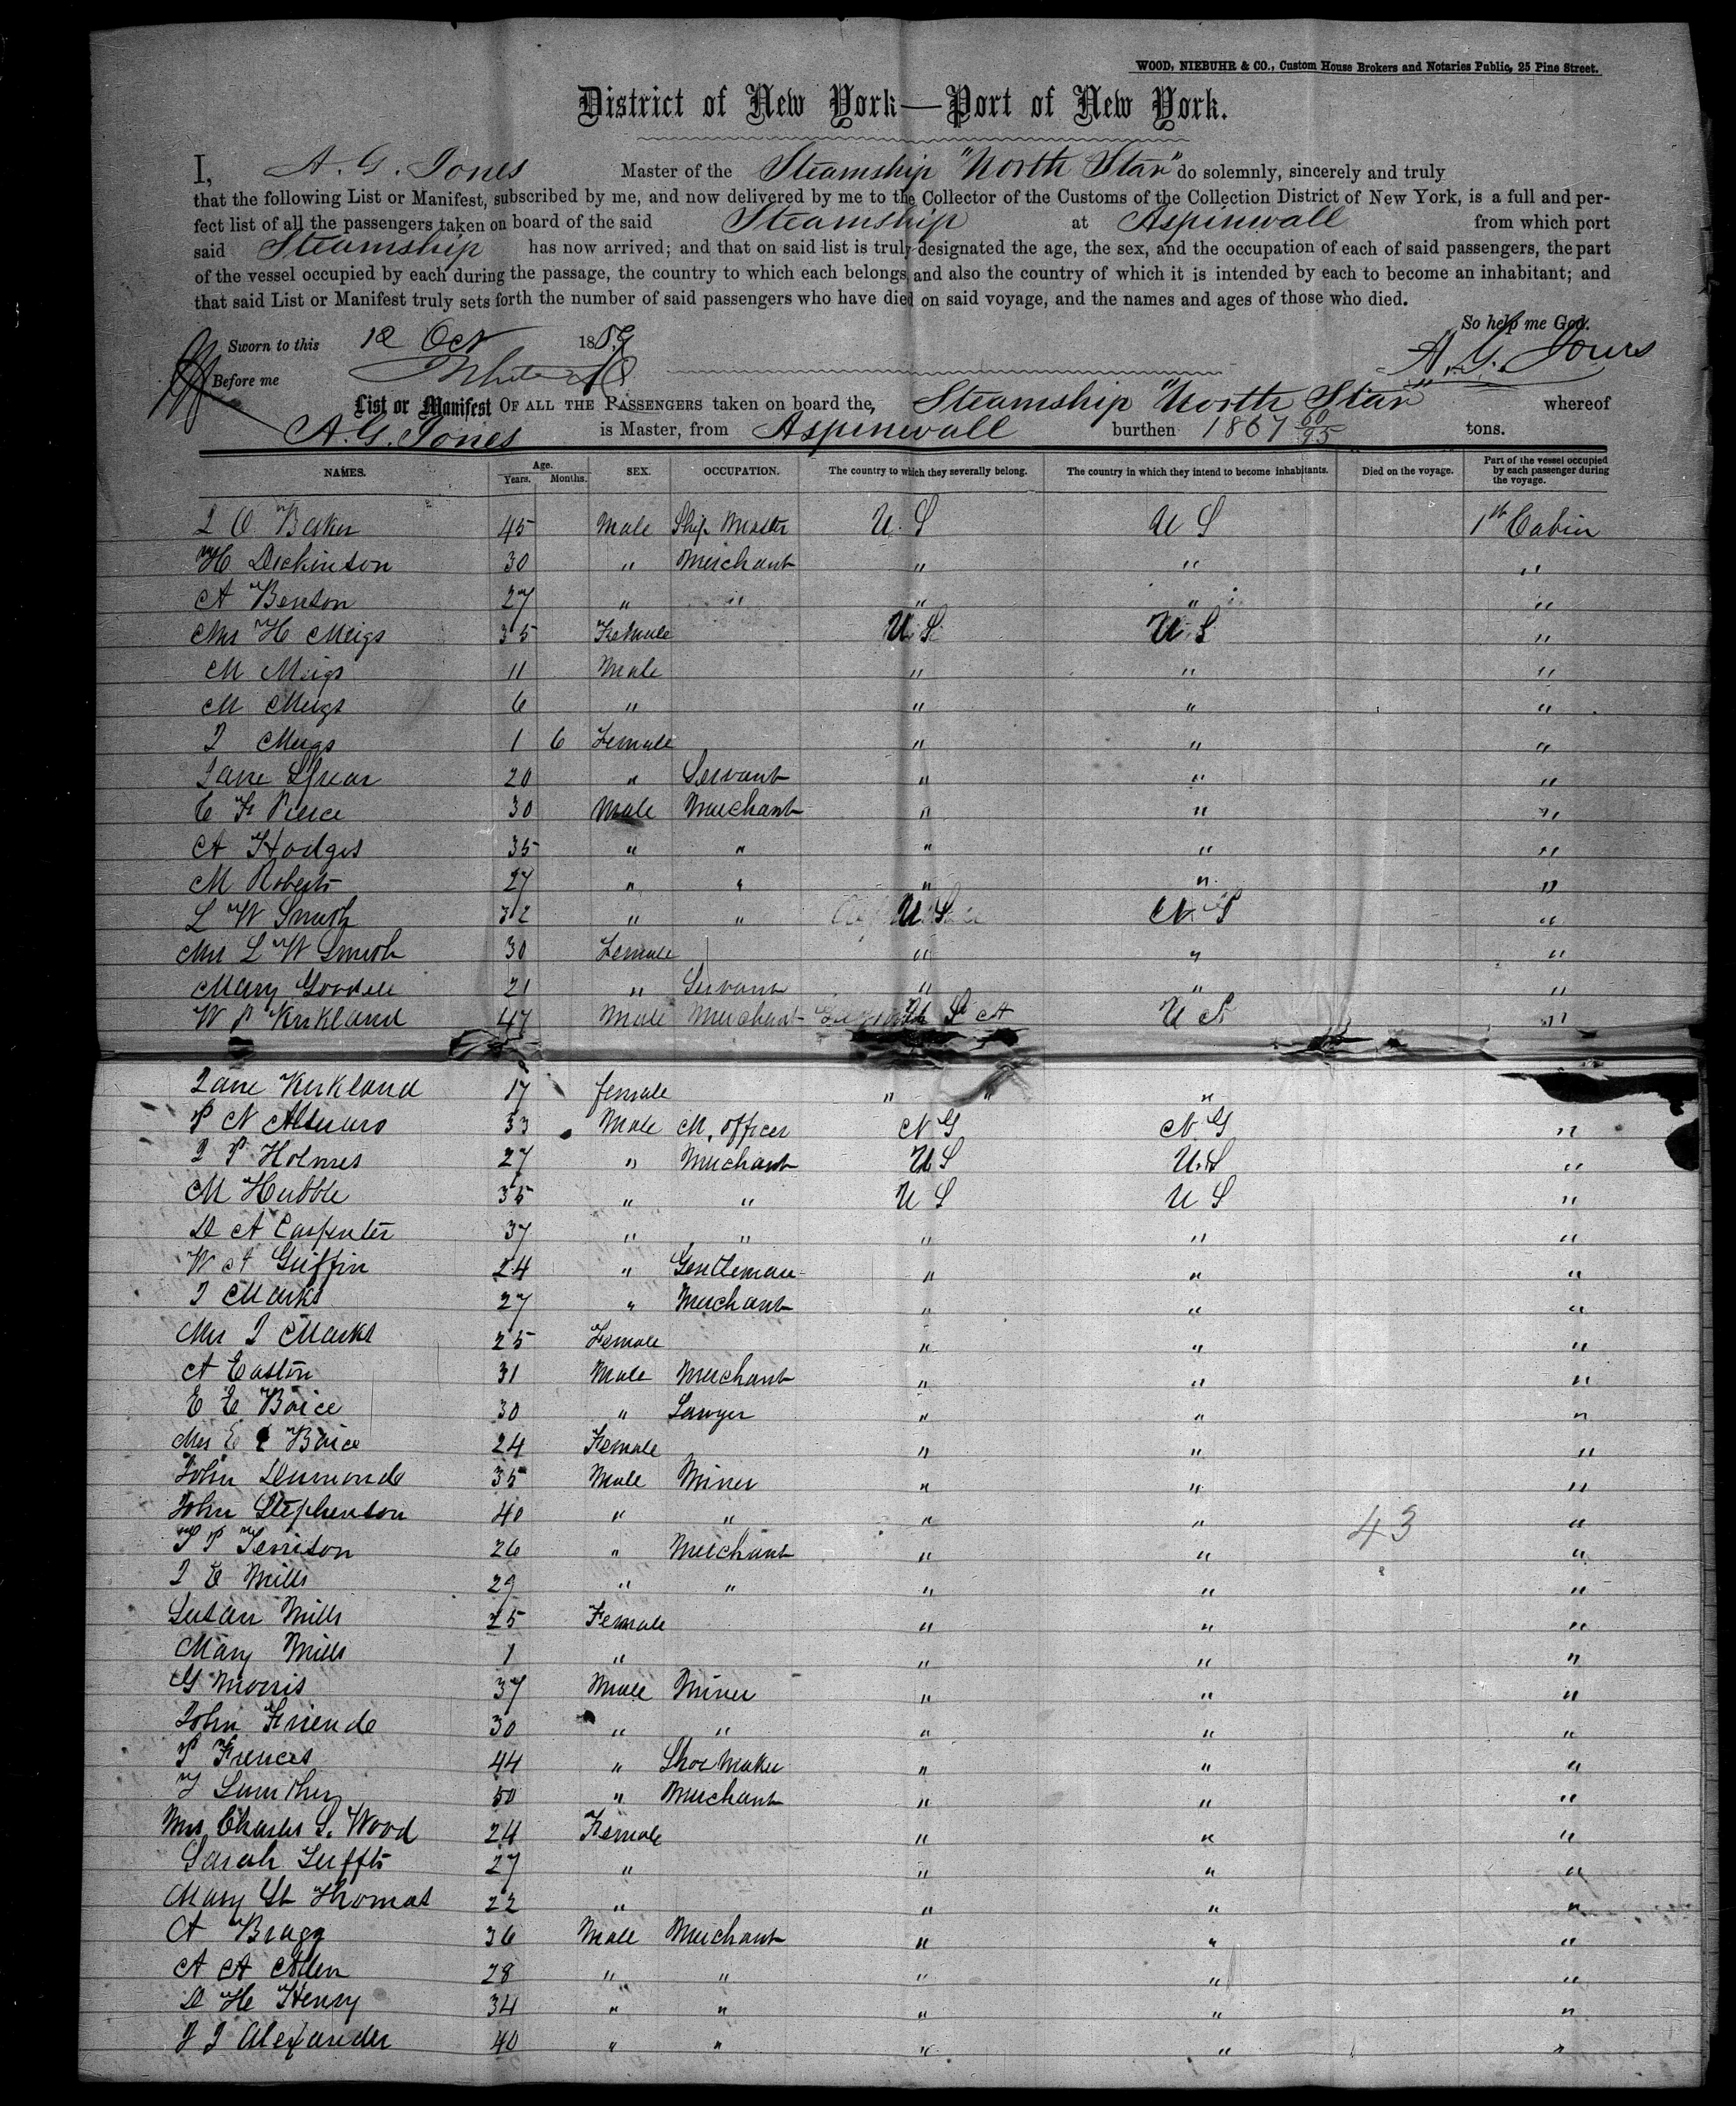 WOOD, NIEBUHR & CO., Custom House Brokers and Notaries Public, 25 Pine Street.
District of New York—Port of New York.
I, A. G. Jones Master of the Steamship "North Star" do solemnly, sincerely and truly
that the following List or Manifest, subscribed by me, and now delivered by me to the Collector of the Customs of the Collection District of New York, is a full and per-
fect list of all the passengers taken on board of the said Steamship at Aspinwall from which port
said Steamship has now arrived; and that on said list is truly designated the age, the sex, and the occupation of each of said passengers, the part
of the vessel occupied by each during the passage, the country to which each belongs and also the country of which it is intended by each to become an inhabitant; and
that said List or Manifest truly sets forth the number of said passengers who have died on said voyage, and the names and ages of those who died.
So help me God.
Sworn to this 12 Oct 1859 A. G. Jones
Before me
List or Manifest OF ALL THE PASSENGERS taken on board the, Steamship "North Star" whereof
A. G. Jones is Master, from Aspinwall burthen 1867 60/95 tons.
NAMES. Age. Years. Months. SEX. OCCUPATION. The country to which they severally belong. The country in which they intend to become inhabitants. Died on the voyage. Part of the vessel occupied by each passenger during the voyage.
Baker 45 Male Ship Master U. S U S 1st Cabin
H Dickinson 30 " Merchant " " "
A Benson 27 " " " " "
Mrs H Meigs 35 Female U. S. U. S "
M Meigs 11 Male " " "
M Meigs 6 " " " "
J Meigs 1 6 Female " " "
Jane Spear 20 " Servant " " "
E F Pierce 30 Male Merchant " " "
A Hodges 35 " " " " "
M Roberts 27 " " " " "
L W Smith 32 " " U S "
Mrs L W Smith 30 Female " " "
Mary Goodell 21 " Servant " " "
W P Kirkland 47 Male Merchant U S "
Jane Kirkland 17 female " " "
P N 33 Male M, officer N G N. G "
J P Holmes 27 " Merchant U S U. S "
M Hubble 35 " " U S U S "
D A Carpenter 37 " " " " "
W A Griffin 24 " Gentleman " " "
J Marks 27 " Merchant " " "
Mrs J Marks 25 Female " " "
A Easton 31 Male Merchant " " "
E E Boice 30 " Lawyer " " "
Mrs E E Boice 24 Female " " "
John Dumonde 35 Male Miner " " "
John Stephenson 40 " " " " 43 "
T P Tenison 26 " Merchant " " "
J E Mills 29 " " " " "
Susan Mills 25 Female " " "
Mary Mills 1 " " " "
G Morris 37 Male Miner " " "
John Friende 30 " " " " "
P Frences 44 " Shoe Maker " " "
50 " Merchant " " "
Mrs Charles S. Wood 24 Female " " "
Sarah Tuffts 27 " " " "
Mary St Thomas 22 " " " "
A Bragg 36 Male Merchant " " "
A A Allen 28 " " " " "
D H Henry 34 " " " " "
J J Alexander 40 " " " " "